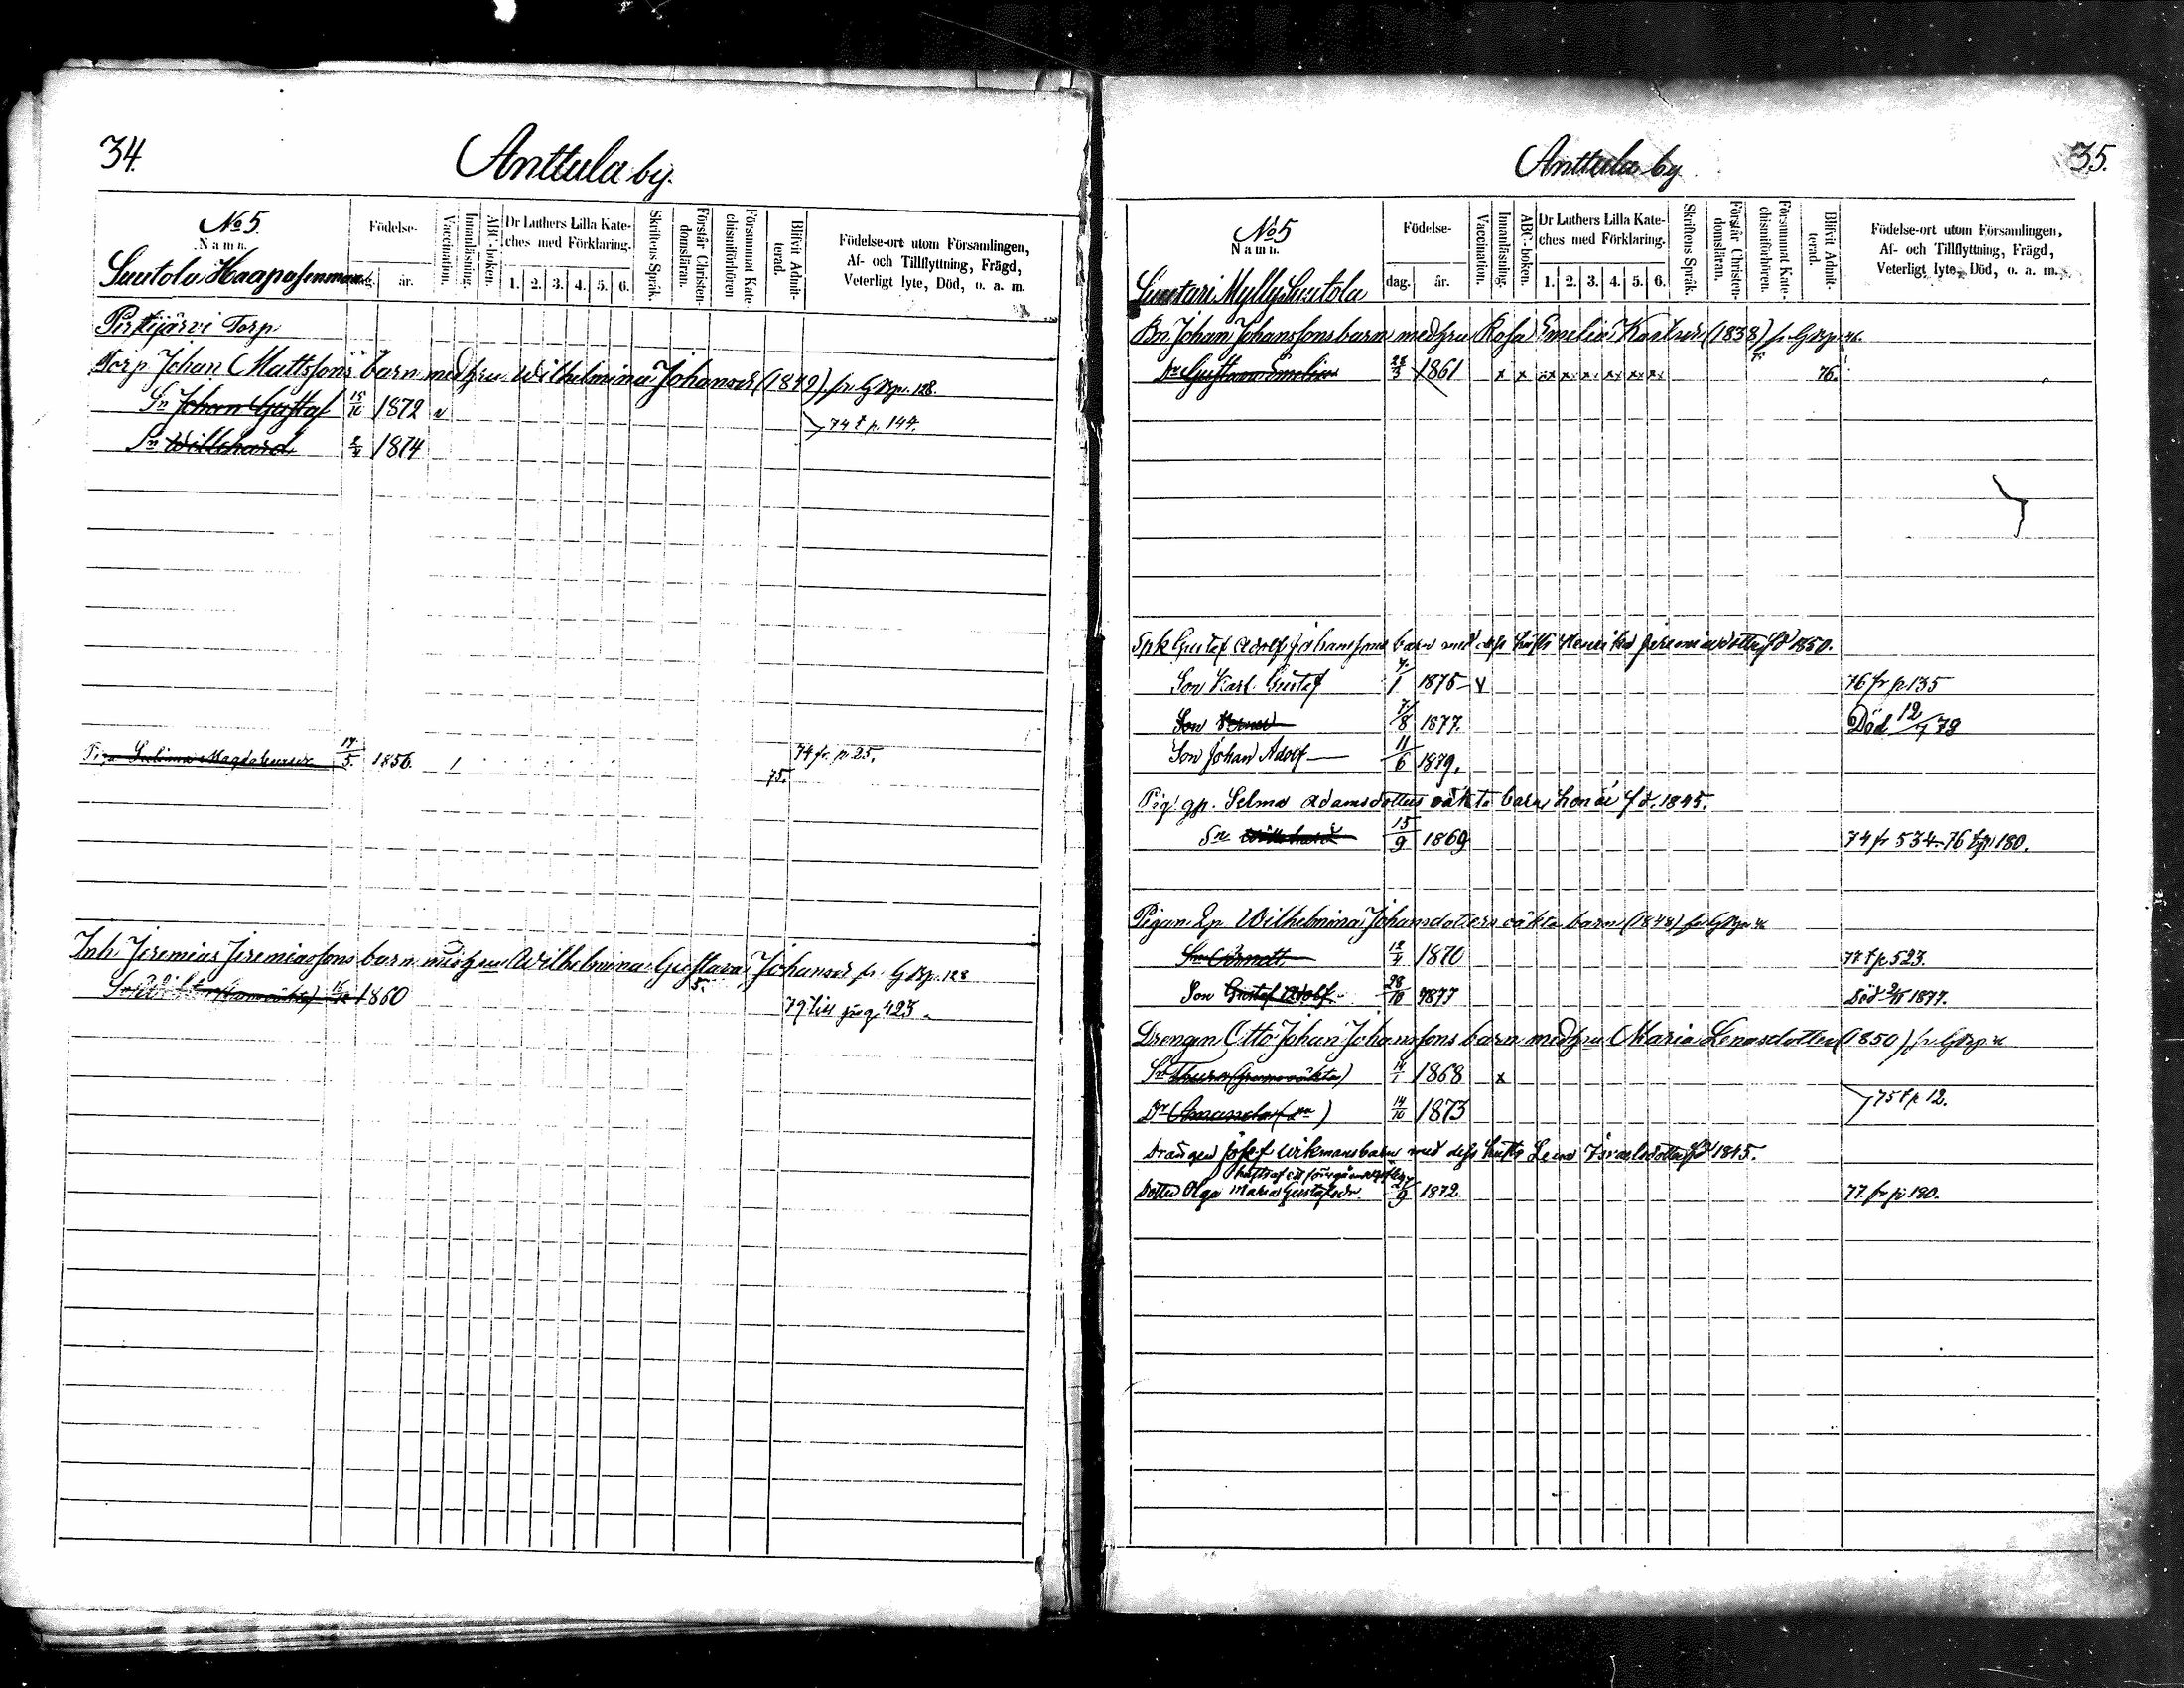 34.
Anttula by.
No 5.
Namn.
Födelse-
år.
Vaccination.
Innanläsning.
ABC-boken.
Dr Luthers Lilla Kate-
ches med Förklaring.
1. 2. 3. 4. 5. 6.
Skriftens Språk.
Förstår Christen-
domsläran.
Försummat Kate-
chismiförhören
Blifvit Admit-
terad.
Födelse-ort utom Församlingen,
Af- och Tillflyttning, Frägd,
Veterligt lyte, Död, o. a. m.
Suutola
Torp
Torp. Johan Mattssons barn med hru Wilhelmina Johansdr (1849) p. 128.
Sn Johan Gustaf 15/10 1872 v
74 t p. 144.
Sn Willehard 1874
Magdalena 17/5 1856. 74 fr. p. 25.
75.
Inh. Jeremias Jeremiassons barn med hru Wilhelmina Gustava Johansdr p. 128
1860 79 till pag 423.
Anttula by
35.
No 5
Namn.
Födelse-
dag. år.
Vaccination.
Innanläsning.
ABC-boken.
Dr Luthers Lilla Kate-
ches med Förklaring.
1. 2. 3. 4. 5. 6.
Skriftens Språk.
Förstår Christen-
domsläran.
Försummat Kate-
chismiförhören.
Blifvit Admit-
terad.
Födelse-ort utom Församlingen,
Af- och Tillflyttning, Frägd,
Veterligt lyte, Död, o. a. m.
Suntari Mylly Suutola
Bn Johan Johanssons barn med hru Rosa Emelia Karlsdr (1838)
Dr Gustava Emelia 1861 x x xx x x x x x 76.
Spk Gustaf Adolf Johanssons barn med dess hustr Henrika Jeremiasdotter fd 1850.
Son Karl Gustaf 1875 v 76 fr p. 135
Son 7/8 1877. Död 12/7 79
Son Johan Adolf 11/6 1879.
Pig. gp. Selma Adamsdotters oäkta barn, hon är fd. 1845.
Sn Willehard 15/9 1869 74 fr 534 76 t p 180.
Pigan Wilhelmina Johansdotters oäkta barn (1848)
1870 77 t p 523.
Son Gustaf Adolf 28/10 1877 Död 2/11 1877.
Drengen Otto Johan Johanssons barn med hru Maria Lenasdotter (1850)
Sn Thure 14/1 1868 x
Dr Amanda 14/10 1873 75 t p 12.
Drängen Josef Wikmans barn med dess hustr Lena Israelsdotter fd 1845.
Dotter Olga Maria Gustafsdr 1872. 77. fr p 180.